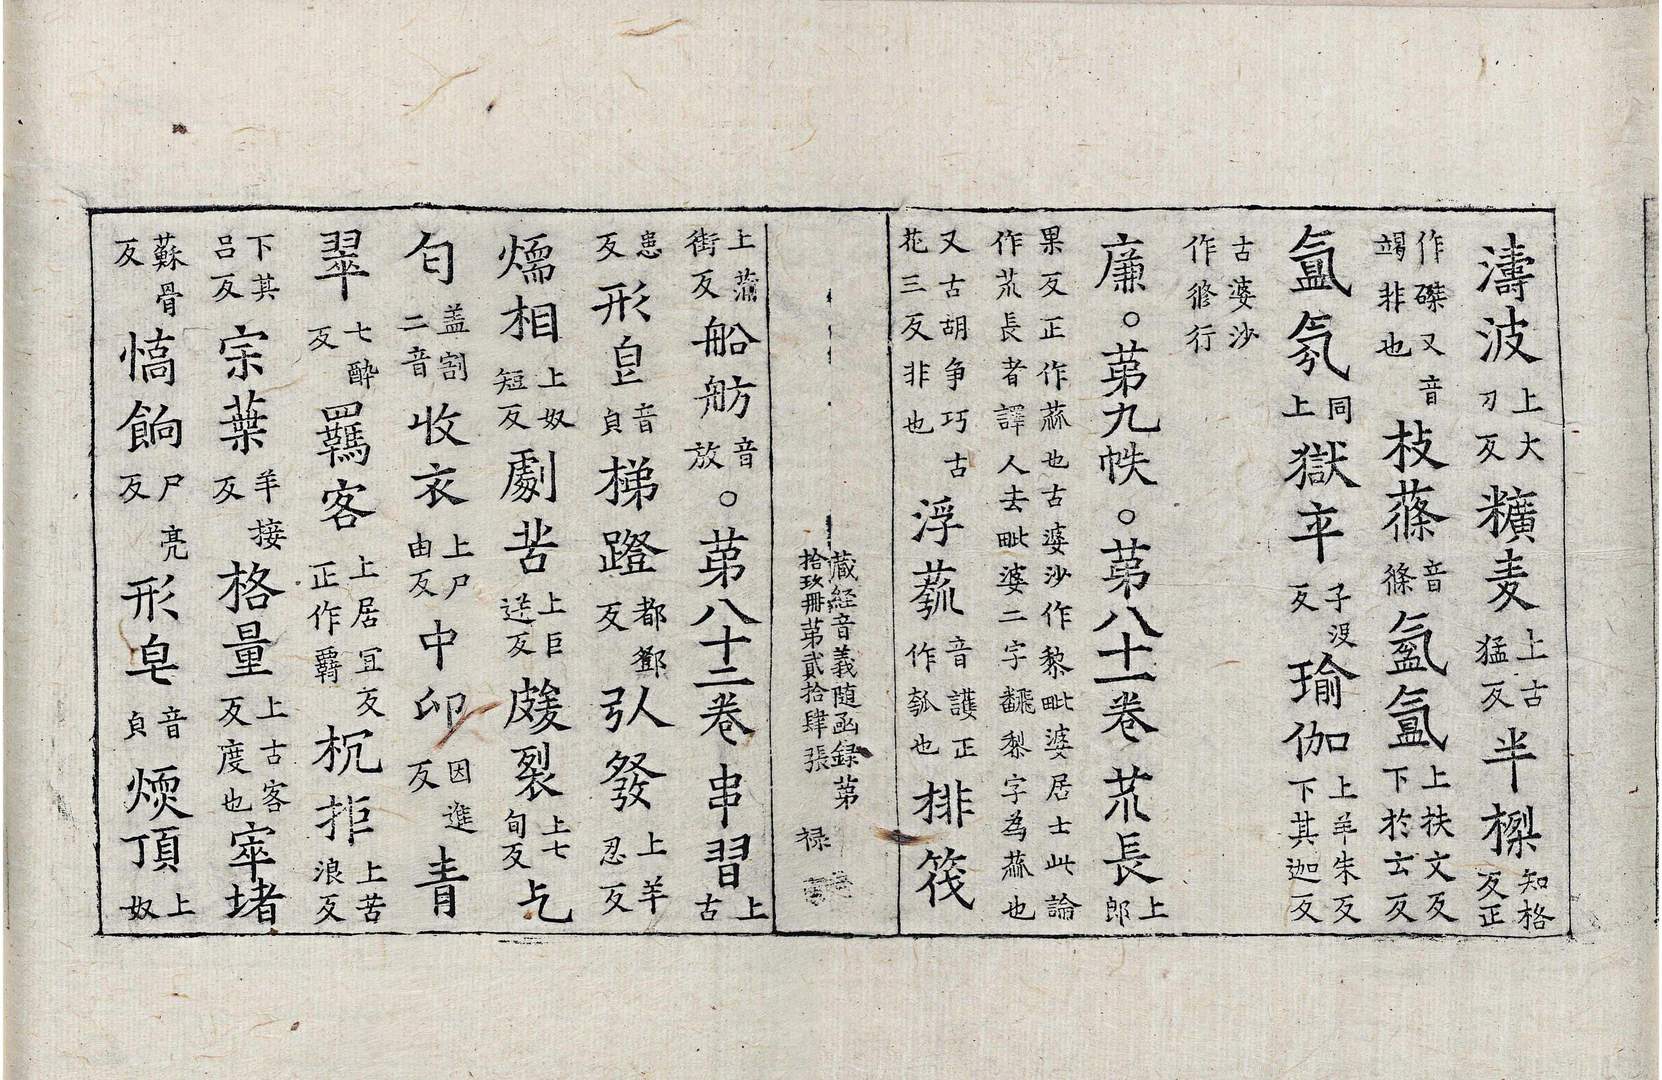 濤波上大刀反𥽷麦上古猛反半㯖知格反正
作磔又音竭非也枝蓧音篠氤氳上扶文反下於云反
氳氛同上獄卒子没反瑜伽上羊朱反下其迦反
古婆沙作修行
廉。苐九帙。苐八十一卷 䒾長上郎
果反正作蓏也古婆沙作黎毗婆居士此論作䒾長者譯人去毗婆二字飜梨字為蓏也
又古胡争巧古花三反非也浮蓏音護正作瓠也排筏
上蒲街反船舫音放。苐八十二卷 串習上古
患反形皃音皃梯蹬都鄧反引發上羊忍反
煗相上奴短反劇苦上巨逆反皴裂上七旬反乞
匄盖割二音收衣上尸由反中印因進反青
翠七醉反羈客上居冝反正作羇杌拒上苦浪反
下其吕反宗葉羊接反格量上古客反度也窣堵
蘇骨反憍餉尸亮反形皃音皃煗頂上奴
藏経音義随函録苐拾玖冊苐貳拾肆張 禄